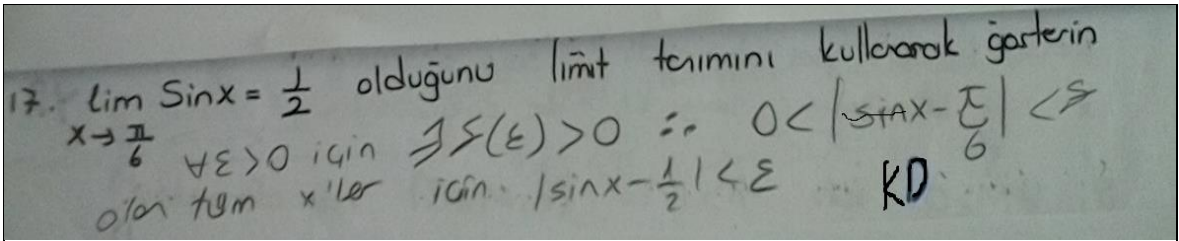 17. lim Sinx = 1/2 olduğunu limit tanımını kullanarak gösterin
x→π/6 ∀ε>0 için ∃δ(ε)>0 ∴ 0<|sinx-π/6|<δ
olan tüm x'ler için |sinx-1/2|<ε KD